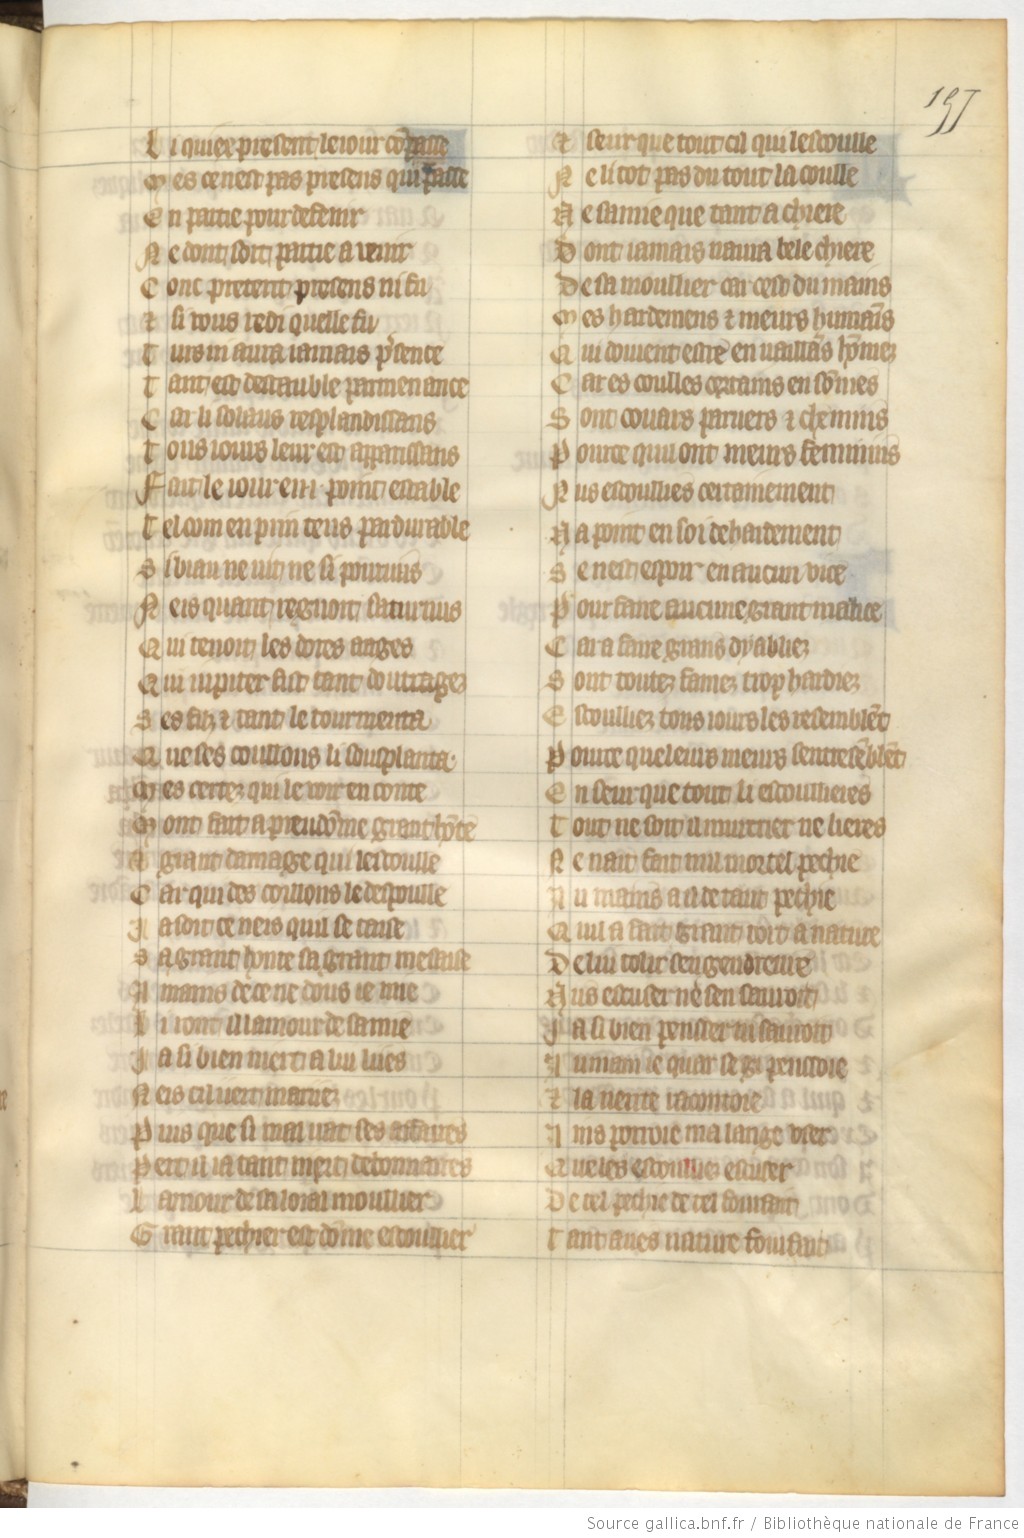 157
Li quiex present le iour cō passe
Mes ce nest pas presens qui passe
En partie pour defenir
Ne dont soit partie a venir
Conc preterit presens ni fu
Et si vous redi quelle fu
Turs ni aura iamais p̄sence
Tant est destauble parmenance
Car li solaus resplandissans
Tous iours leur est apparissans
Fait le iour en i point estable
Tel com en prin tens pardurable
Si biau ne vit ne si pour vus
Neis quant regnoit saturnus
Qui tenoit les dores aages
Qui iupiter fist tant doutrages
Ses filz et tant le tourmenta
Que ses couillons li sousplanta
Mes certez qui le voir en conte
Mout fait a preudōme grant hōte
Et grant damage qui lescoulle
Car qui des coillons le despoulle
Ja soit ce neis quil se taise
Sa grant honte sa grant mesaise
Au mains de ce ne dous ie mie
Li tout il lamour de samie
Ja si bien niert a lui lies
Neis cil iert mariez
Puis que si mal vat ses afaires
Pert il ia tant niert debonnaires
Lamour de sa loial moullier
Grant pechier est dōme escoullier
Et seur que tout cil qui lescoulle
Ne li tot pas du tout la coulle
Ne samie que tant a chiere
Dont iamais naura bele chiere
De sa moullier car cest du mains
Mes hardemens et meurs humaīs
Qui doivent estre en vaillās hōmez
Car escoulles certains en sōmes
Sont couars parvers et chennis
Pource quil ont meurs feminins
Nus escoullies certainement
Na point en soi de hardement
Se nest espoir en aucun vice
Pour faire aucune grant malice
Car a faire grans dyabliez
Sont toutez famez trop hardiez
Escoulliez tous iours les resemblēt
Pource que leurs meurs sentresēblēt
En seur que tout li escoullieres
Tout ne soit il murtrier ne lieres
Ne nait fait nul mortel pechie
Au mains a il de tant pechie
Quil a fait grant tort a nature
De lui tolir sengendreure
Nus escuser ne sen sauroit
Ja si bien penster ni sauroit
Au mains ie quar se gi pensoie
Et la verite racontoie
Ains porroie ma langue user
Que les escoulliez escuser
De tel pechie de tel
Tant a vers nature
Source gallica.bnf.fr / Bibliothèque nationale de France